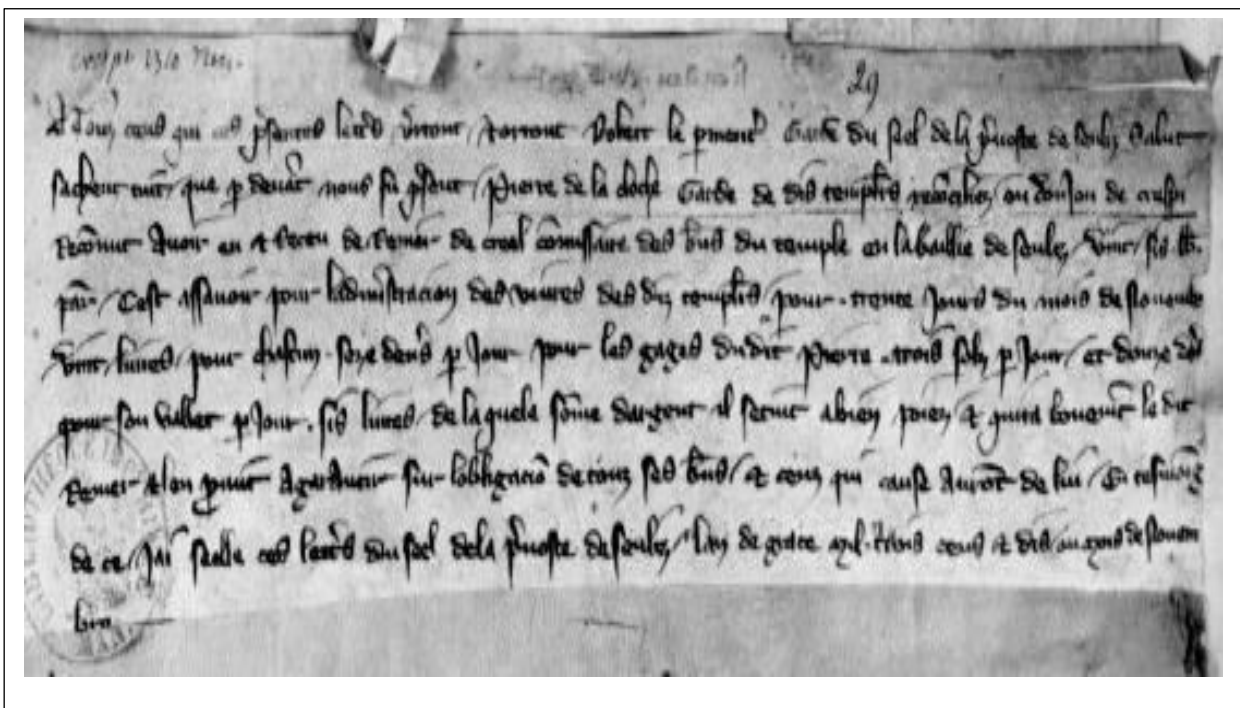 29
A Touz ceus qui ces p̃sentes lettr̃s verront / & orront Robert le parmentr̃ Garde du seel de la p̃uoste de senliz Salut
sachent tuit / que p̃ deuãt nous fu p̃sent / Pierre de la cloche Garde de dis templiẽs ou donion de crespi
Recõnut Auoir eu & receu de Remer de creel cõmissaire des biẽs du temple en la baillie de senlez / vint / sis lb̃.
par̃ / Cest assauoir pour ladmistracion des viures des diz templiẽs / pour . trente Jours du mois de nouenbr̃
vint / liures / pour chascun . seze deniẽs p̃ Jour pour les gages dudit Pierre . trois solz p̃ Jour / et douze dr̃s
pour son vallet p̃ Jour . sis liures / de laquele sõme dargent il se tint a bien poiez & quita bonemẽt le dit
Remer & len p̃mist A garantir sur lobligaciõ de touz ses biẽs / & ceus qui cause Aurõt de lui / En tesmoing
de ce / Jai seelle ces lettr̃s du seel de la p̃uoste de senlez / lan de grace mil . trois cens & dis ou mois de nouem
bre